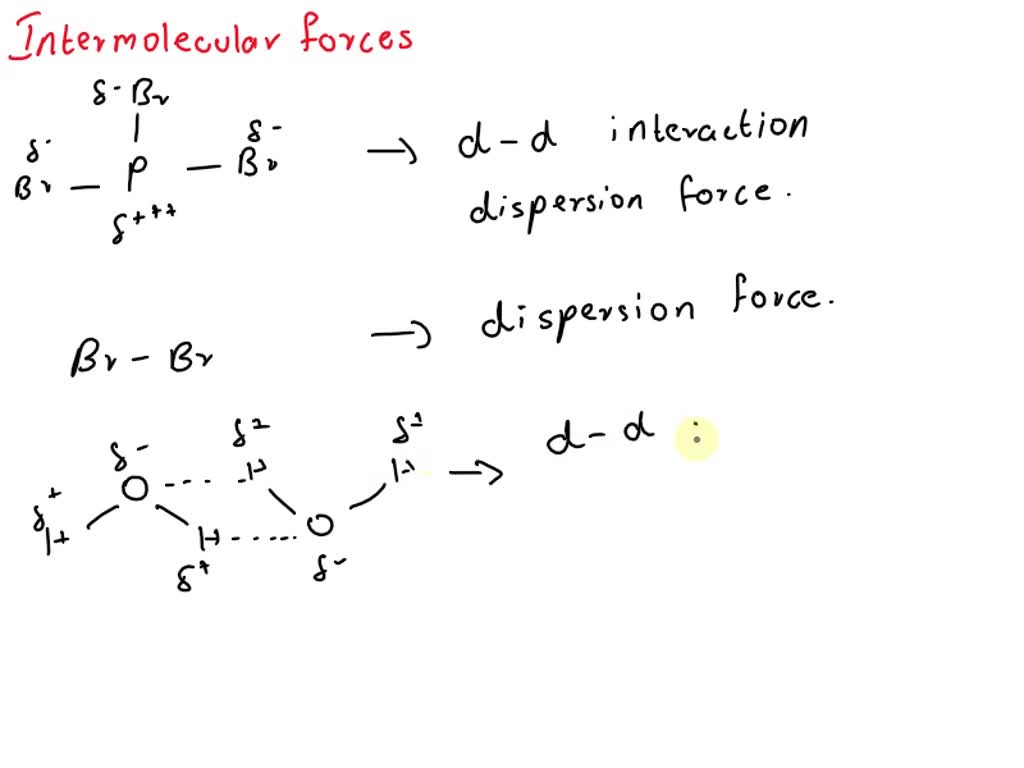 Intermolecular forces
δ- Br
δ- δ-
Br - P - Br → d-d interaction
δ+++ dispersion force.
Br - Br → dispersion force.
δ- δ+ δ+
O H H → d-d :
δ+
H H O
δ+ δ-